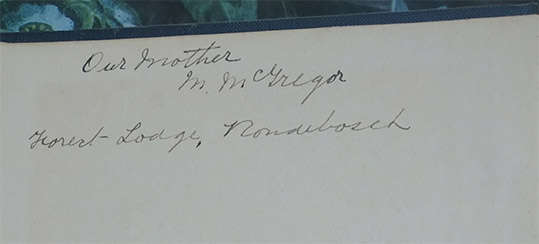 Our Mother
M. McGregor
Forest Lodge, Rondebosch